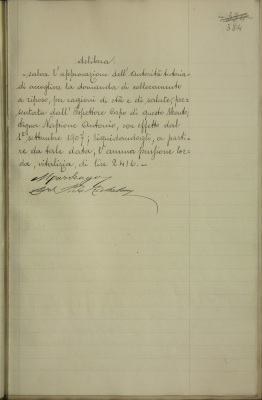 384
delibera
– salva l'approvazione dell'Autorità tutoria –
di accogliere la domanda di collocamento
a riposo, per ragioni di età e di salute, pre-
sentata dall'Ispettore Capo di questo
Signor Napione Antonio, con effetto dal
1° settembre 1907; liquidandogli, a parti-
re da tale data, l'annua pensione lor-
da, vitalizia, di lire 2416.–